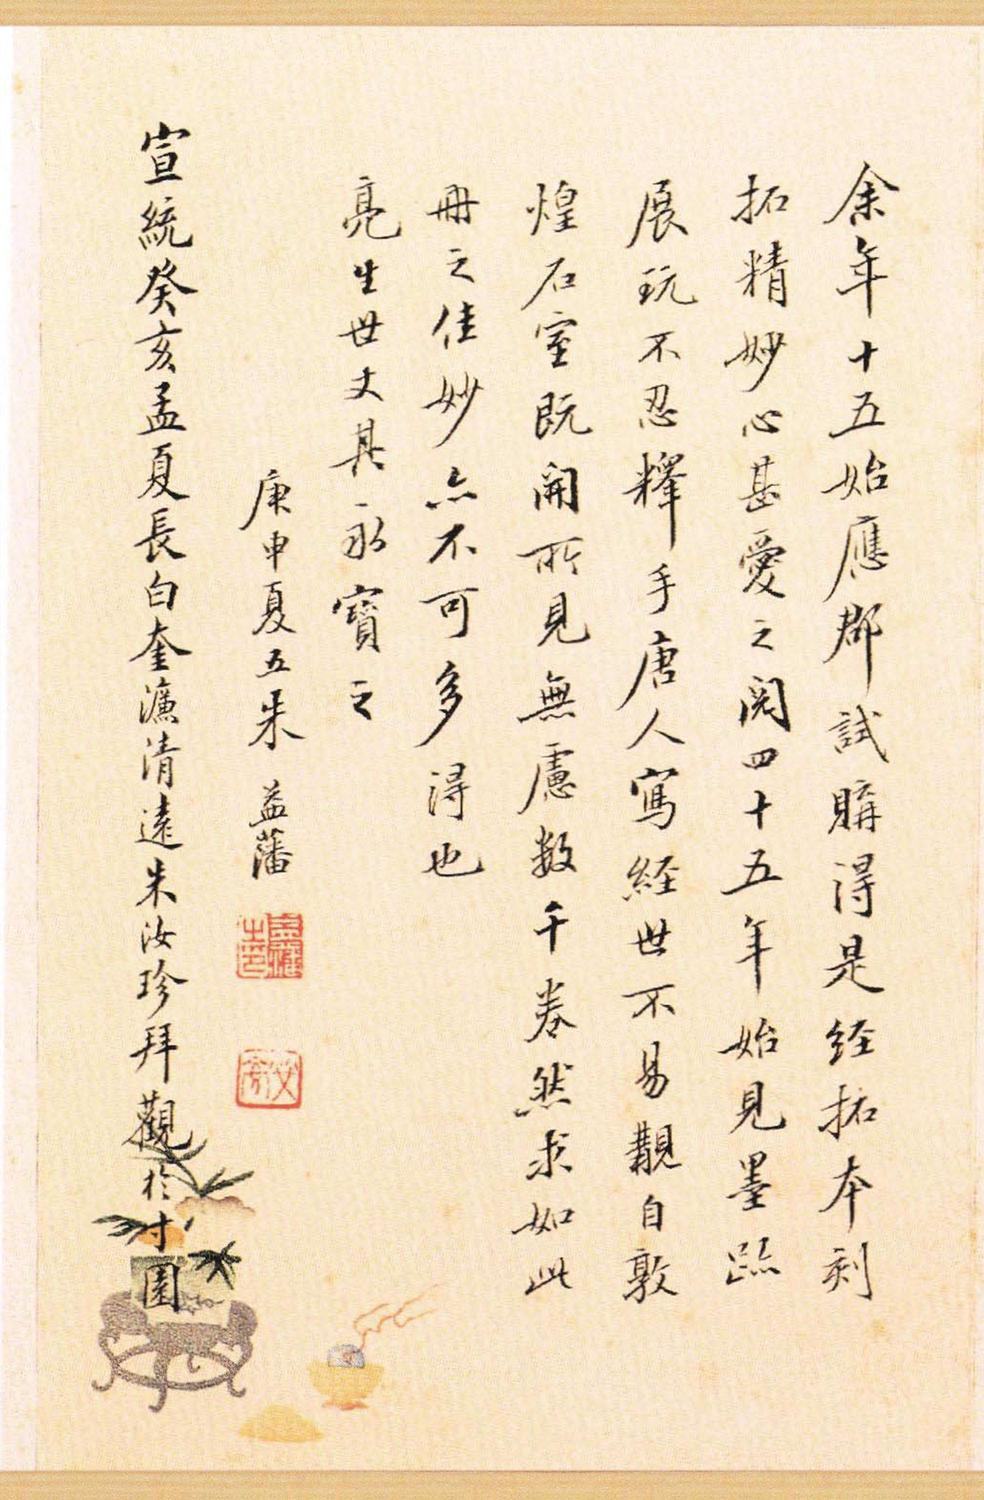 余年十五始應郡試購得是経拓本刻
拓精妙心甚愛之閱四十五年始見墨跡
展玩不忍釋手唐人寫経世不易覯自敦
煌石室既開所見無慮数千卷然求如此
冊之佳妙亦不可多得也
亮生世丈其永寶之
庚申夏五朱益藩
宣統癸亥孟夏長白奎濂清遠朱汝珍拜觀於寸園